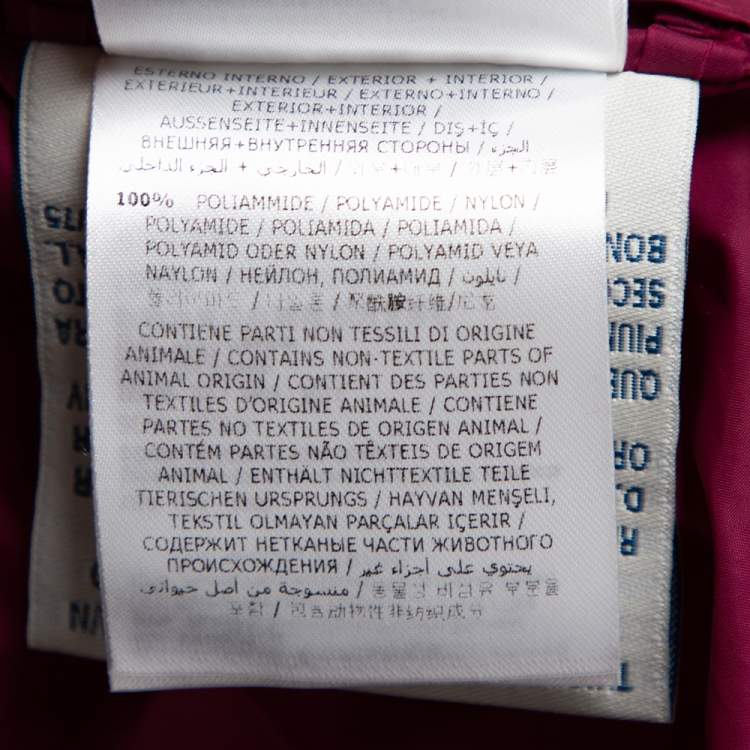 ESTERNO INTERNO / EXTERIOR + INTERIOR /
EXTERIEUR+INTERIEUR / EXTERNO+INTERNO /
EXTERIOR+INTERIOR /
AUSSENSEITE+INNENSEITE / DIŞ+İÇ /
ВНЕШНЯЯ+ВНУТРЕННЯЯ СТОРОНЫ / الجزء
الخارجي + الجزء الداخلي /
100% POLIAMMIDE / POLYAMIDE / NYLON /
POLYAMIDE / POLIAMIDA / POLIAMIDA /
POLYAMID ODER NYLON / POLYAMID VEYA
NAYLON / НЕЙЛОН, ПОЛИАМИД / نايلون /
폴리아미드 / 나일론 / 聚酰胺纤维/尼龙
CONTIENE PARTI NON TESSILI DI ORIGINE
ANIMALE / CONTAINS NON-TEXTILE PARTS OF
ANIMAL ORIGIN / CONTIENT DES PARTIES NON
TEXTILES D'ORIGINE ANIMALE / CONTIENE
PARTES NO TEXTILES DE ORIGEN ANIMAL /
CONTÉM PARTES NÃO TÊXTEIS DE ORIGEM
ANIMAL / ENTHÄLT NICHTTEXTILE TEILE
TIERISCHEN URSPRUNGS / HAYVAN MENŞELİ,
TEKSTIL OLMAYAN PARÇALAR IÇERIR /
СОДЕРЖИТ НЕТКАНЫЕ ЧАСТИ ЖИВОТНОГО
ПРОИСХОЖДЕНИЯ / يحتوي على أجزاء غير
منسوجة من أصل حيواني / 동물성 비섬유 부분을
포함 / 包含动物性非纺织成分